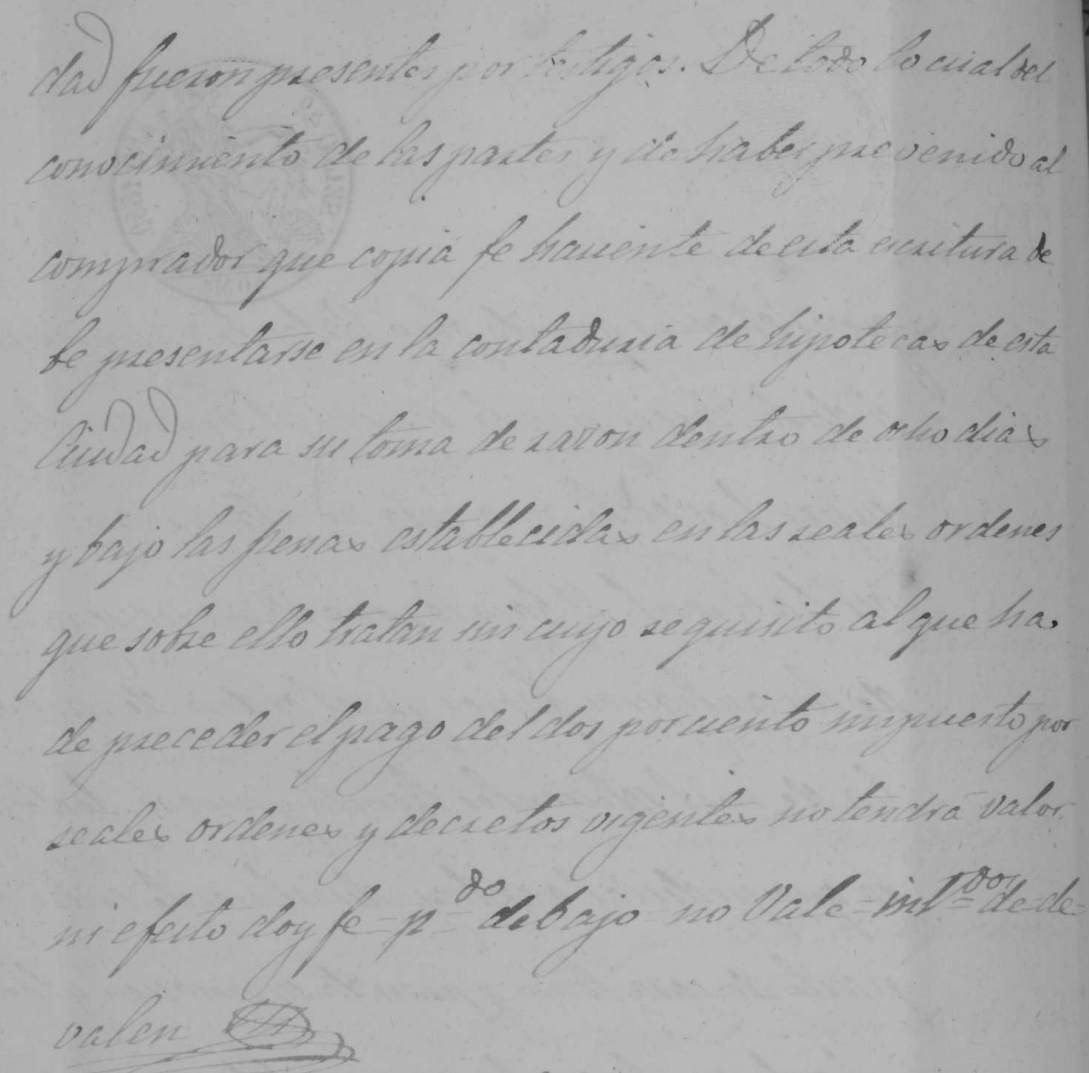 dad fueron presentes por testigos. De todo lo cual del
conocimiento de las partes y de haber prevenido al
comprador que copia fe haciente de esta escritura de
be presentarse en la contaduria de hipotecas de esta
Ciudad para su toma de razon dentro de ocho dias
y bajo las penas establecidas en las reales ordenes
que sobre ello tratan sin cuyo requisito al que ha
de preceder el pago del dos por ciento impuesto por
reales ordenes y decretos vigentes no tendrá valor
ni efecto doy fe = p.do debajo = no Vale = int.dos de = de =
valen